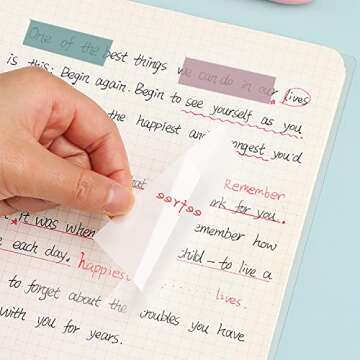 One of the best things we can do in our lives
is this: Begin again. Begin to see yourself as you
the happiest and strongest you'd
Remember
hat ark for you.
it was when emember how
e each day. happies child – to live a
to forget about the troubles you have lives.
with you for years.